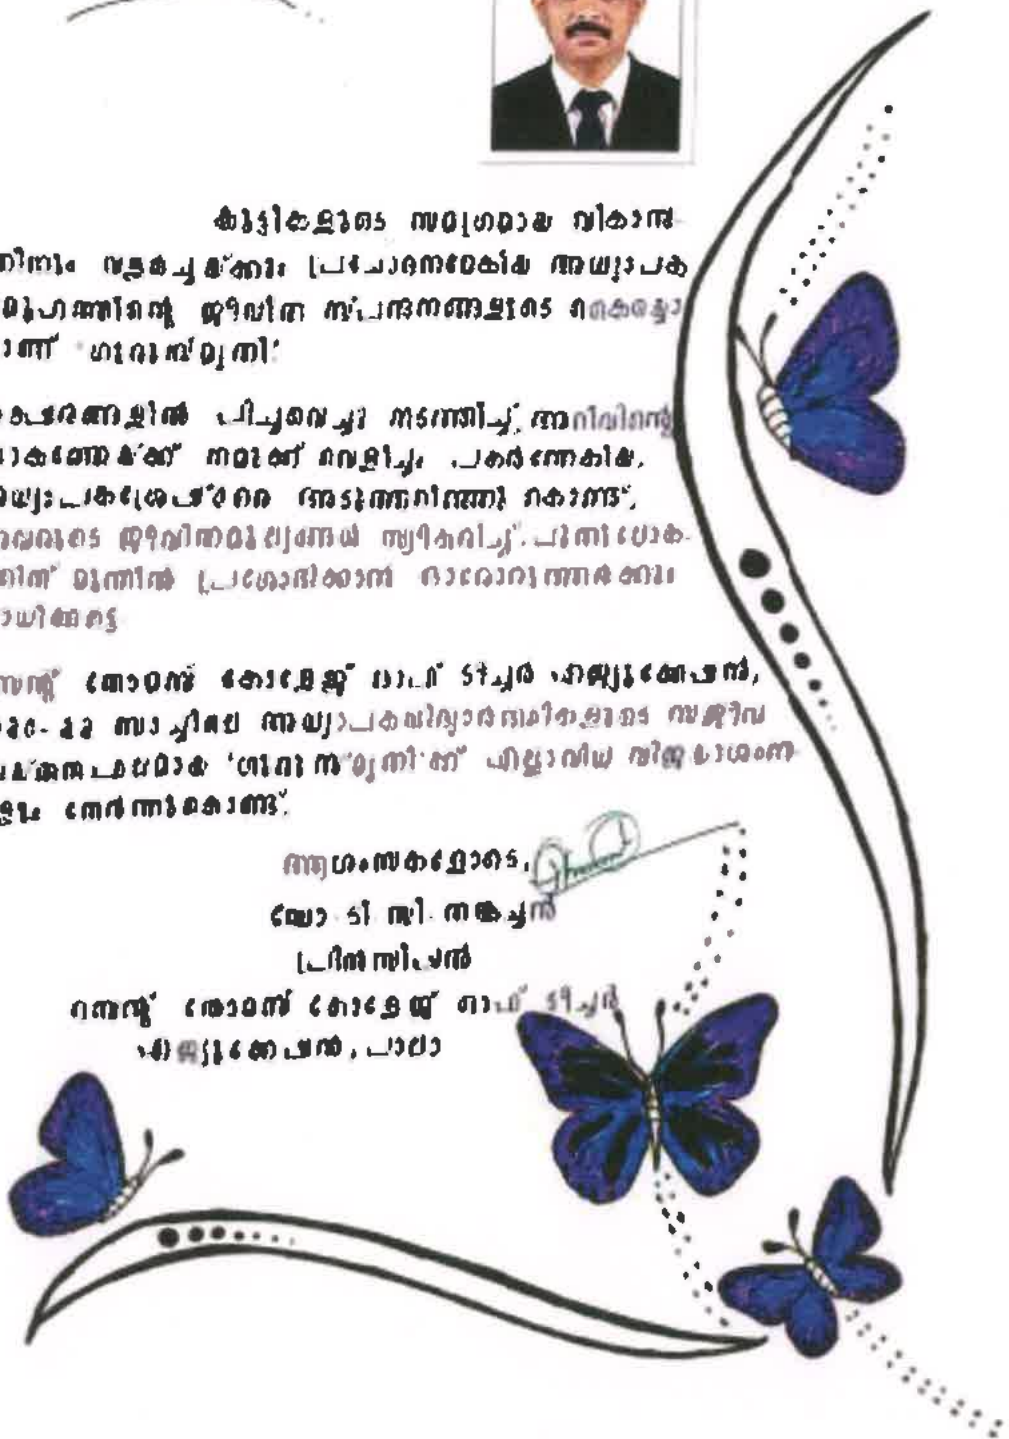 കുട്ടികളുടെ സമഗ്രമായ വികാസ
ത്തിനും വളർച്ചയ്ക്കും പ്രചോദനമേകിയ അധ്യാപക
സമൂഹത്തിന്റെ ജീവിത സ്പന്ദനങ്ങളുടെ
ഗുരുസ്മൃതി'
പിച്ചവെച്ചു നടത്തിച്ച്, അറിവിന്റെ
നമുക്ക് വെളിച്ചം പകർന്നേകിയ,
അടുത്തറിഞ്ഞു കൊണ്ട്,
അവരുടെ ജീവിതമൂല്യങ്ങൾ സ്വീകരിച്ച്. പുതുലോക
ത്തിന് മുന്നിൽ പ്രശോഭിക്കാൻ ഓരോരുത്തർക്കും
സാധിക്കട്ടെ
സെന്റ് തോമസ് കോളേജ് ഓഫ് ടീച്ചർ എജ്യുക്കേഷൻ,
ബാച്ചിലെ അധ്യാപകവിദ്യാർത്ഥികളുടെ സജീവ
'ഗുരുസ്മൃതി'ക്ക് എല്ലാവിധ വിജയാശംസ
കളും നേർന്നുകൊണ്ട്.
ആശംസകളോടെ,
ഡോ ടി സി. തങ്കച്ചൻ
പ്രിൻസിപ്പൽ
സെന്റ് തോമസ് കോളേജ് ഓഫ് ടീച്ചർ
എജ്യുക്കേഷൻ, പാലാ